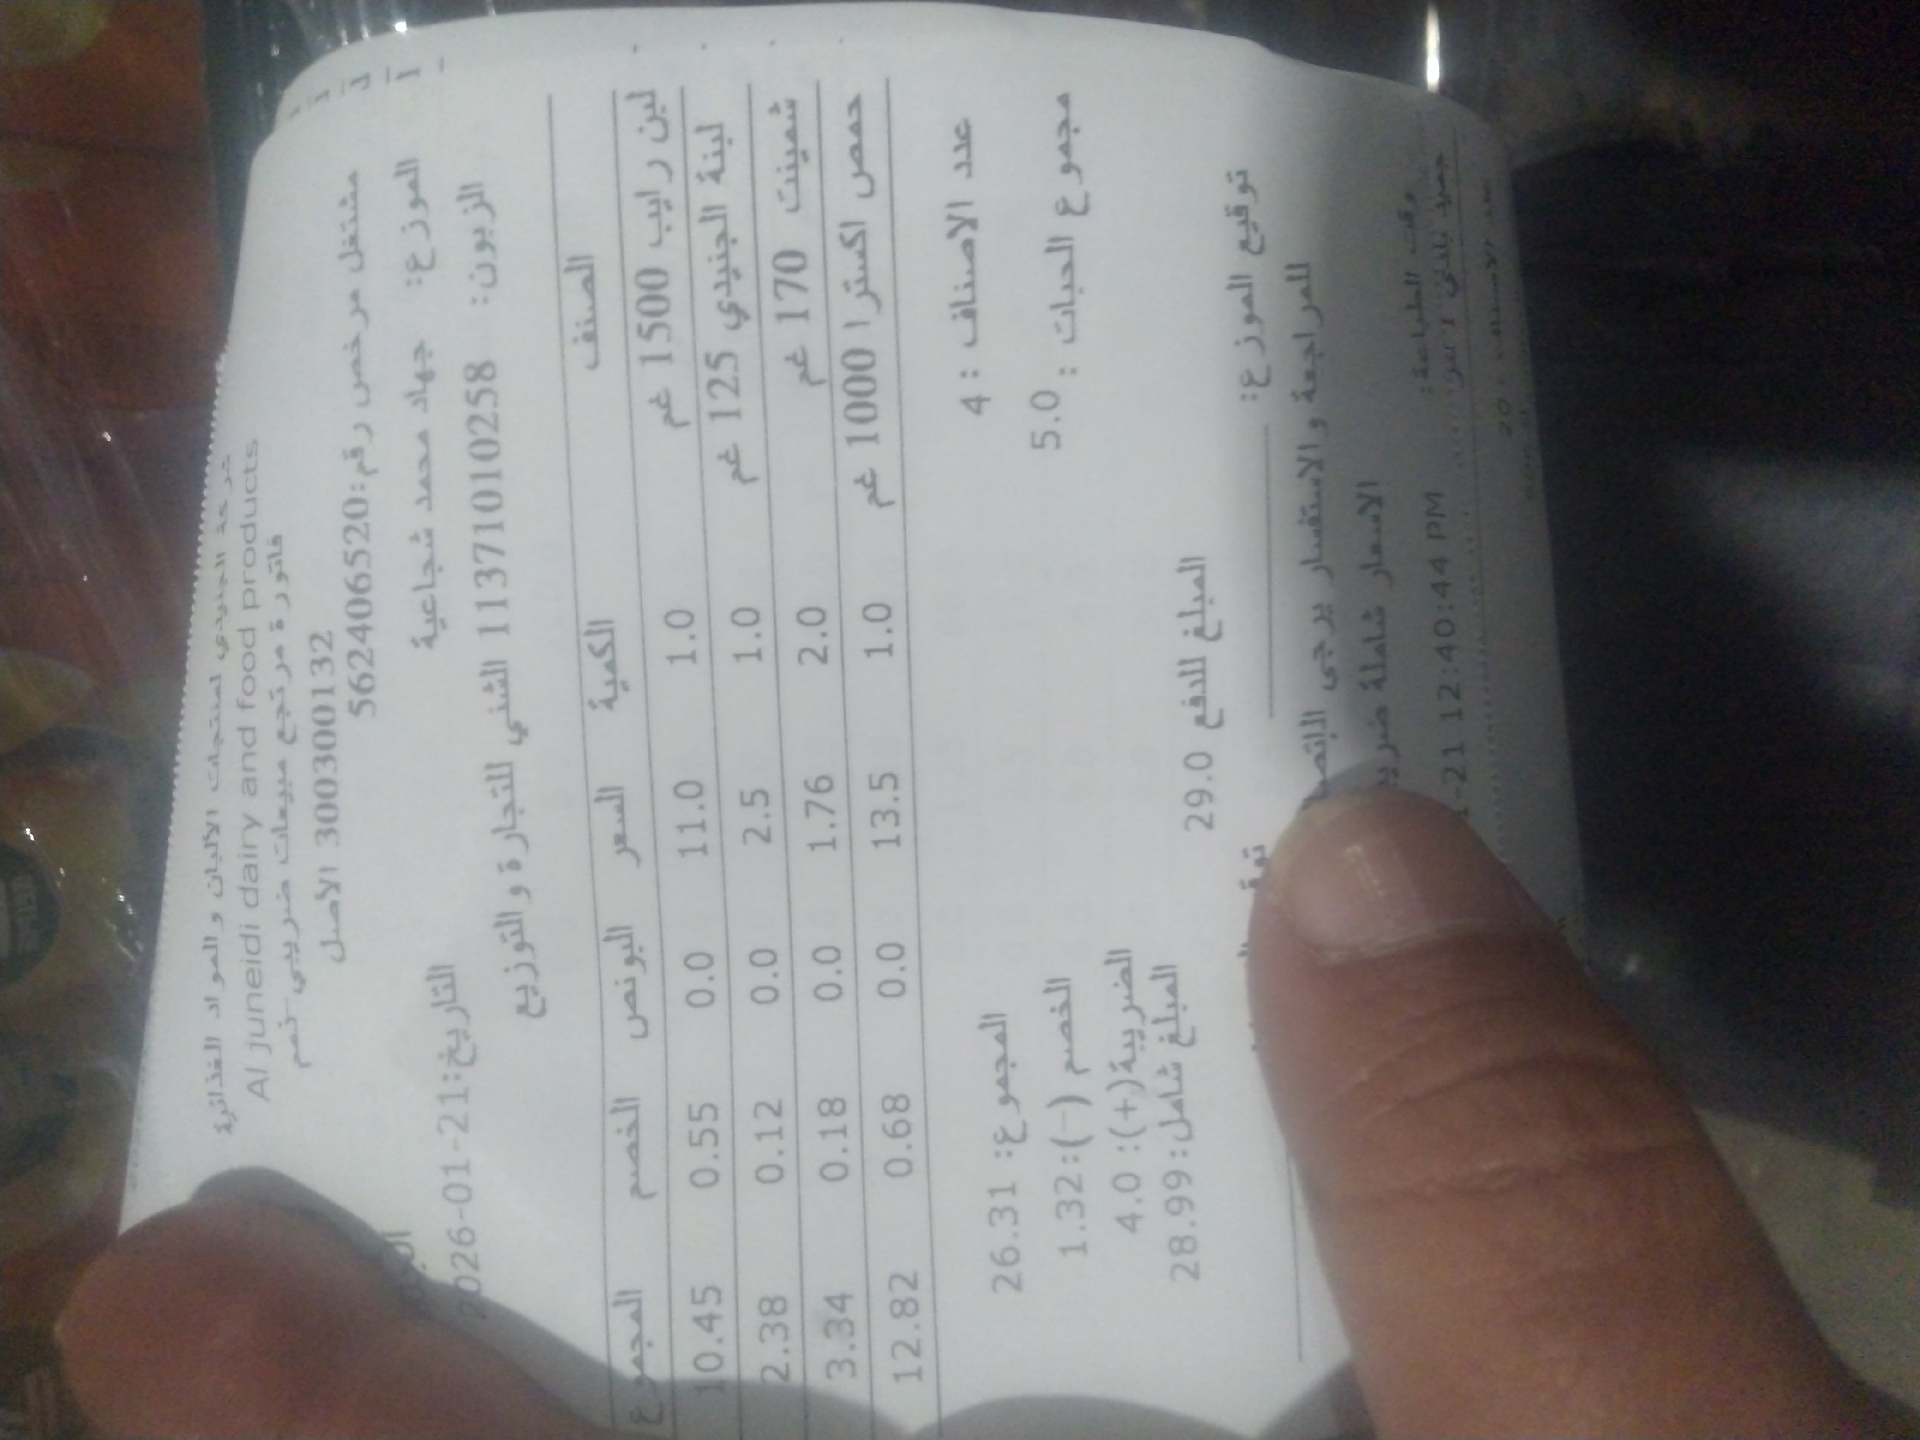 شركة الجنيدي لمنتجات الالبان و المواد الغذائية
Al juneidi dairy and food products
فاتورة مرتجع مبيعات ضريبي-خصم
300300132 الأصل
مشتغل مرخص رقم:562406520
الموزع: جهاد محمد شجاعية
التاريخ:2026-01-21
الزبون: 11371010258 الشني للتجارة و التوزيع
الصنف الكمية السعر البونص الخصم المجموع
لبن رايب 1500 غم 1.0 11.0 0.0 0.55 10.45
لبنة الجنيدي 125 غم 1.0 2.5 0.0 0.12 2.38
شمينت 170 غم 2.0 1.76 0.0 0.18 3.34
حمص اكسترا 1000 غم 1.0 13.5 0.0 0.68 12.82
عدد الاصناف : 4 المجموع: 26.31
مجموع الحبات : 5.0 الخصم (-):1.32
الضريبة(+): 4.0
المبلغ شامل:28.99
المبلغ للدفع 29.0
توقيع الموزع:
للمراجعة و الاستفسار يرجى
الاسعار شاملة
وقت الطباعة: 21 12:40:44 PM